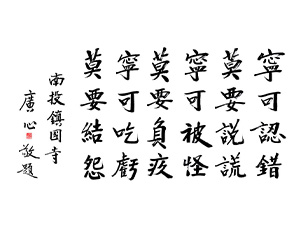 寧可認錯
莫要說謊
寧可被怪
莫要負疚
寧可吃虧
莫要結怨
南投鎮國寺
廣心敬題